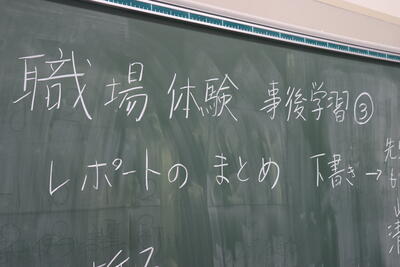 職場体験 事後学習③
レポートのまとめ 下書き→